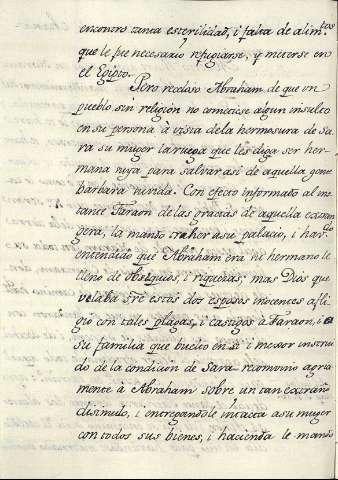 encontro tanta esterilidad, i falta de alim.tos
que le fue necesario refugiarse, y meterse en
el Egipto.
Pero receloso Abraham de que un
pueblo sin religion no cometiese algun insulto
en su persona à vista de la hermosura de Sa
ra su muger la ruega que les diga ser her
mana suya para salvar asi de aquella gente
barbara su vida. Con efecto informado al ins
tante Faraon de las gracias de aquella estran
gera, la mandó traher a su palacio, i ha
entendido que Abraham era su hermano le
lleno de obsequios, i riquezas; mas Dios que
velaba sre estos dos esposos inocentes afli
gió con tales plagas, i castigos à Faraon, i a
su familia que buelto en si i mejor instrui
do de la condicion de Sara reconvino agria
mente à Abraham sobre un tan estraño
disimulo, i entregandole intacta a su muger
con todos sus bienes, i hacienda le mandó